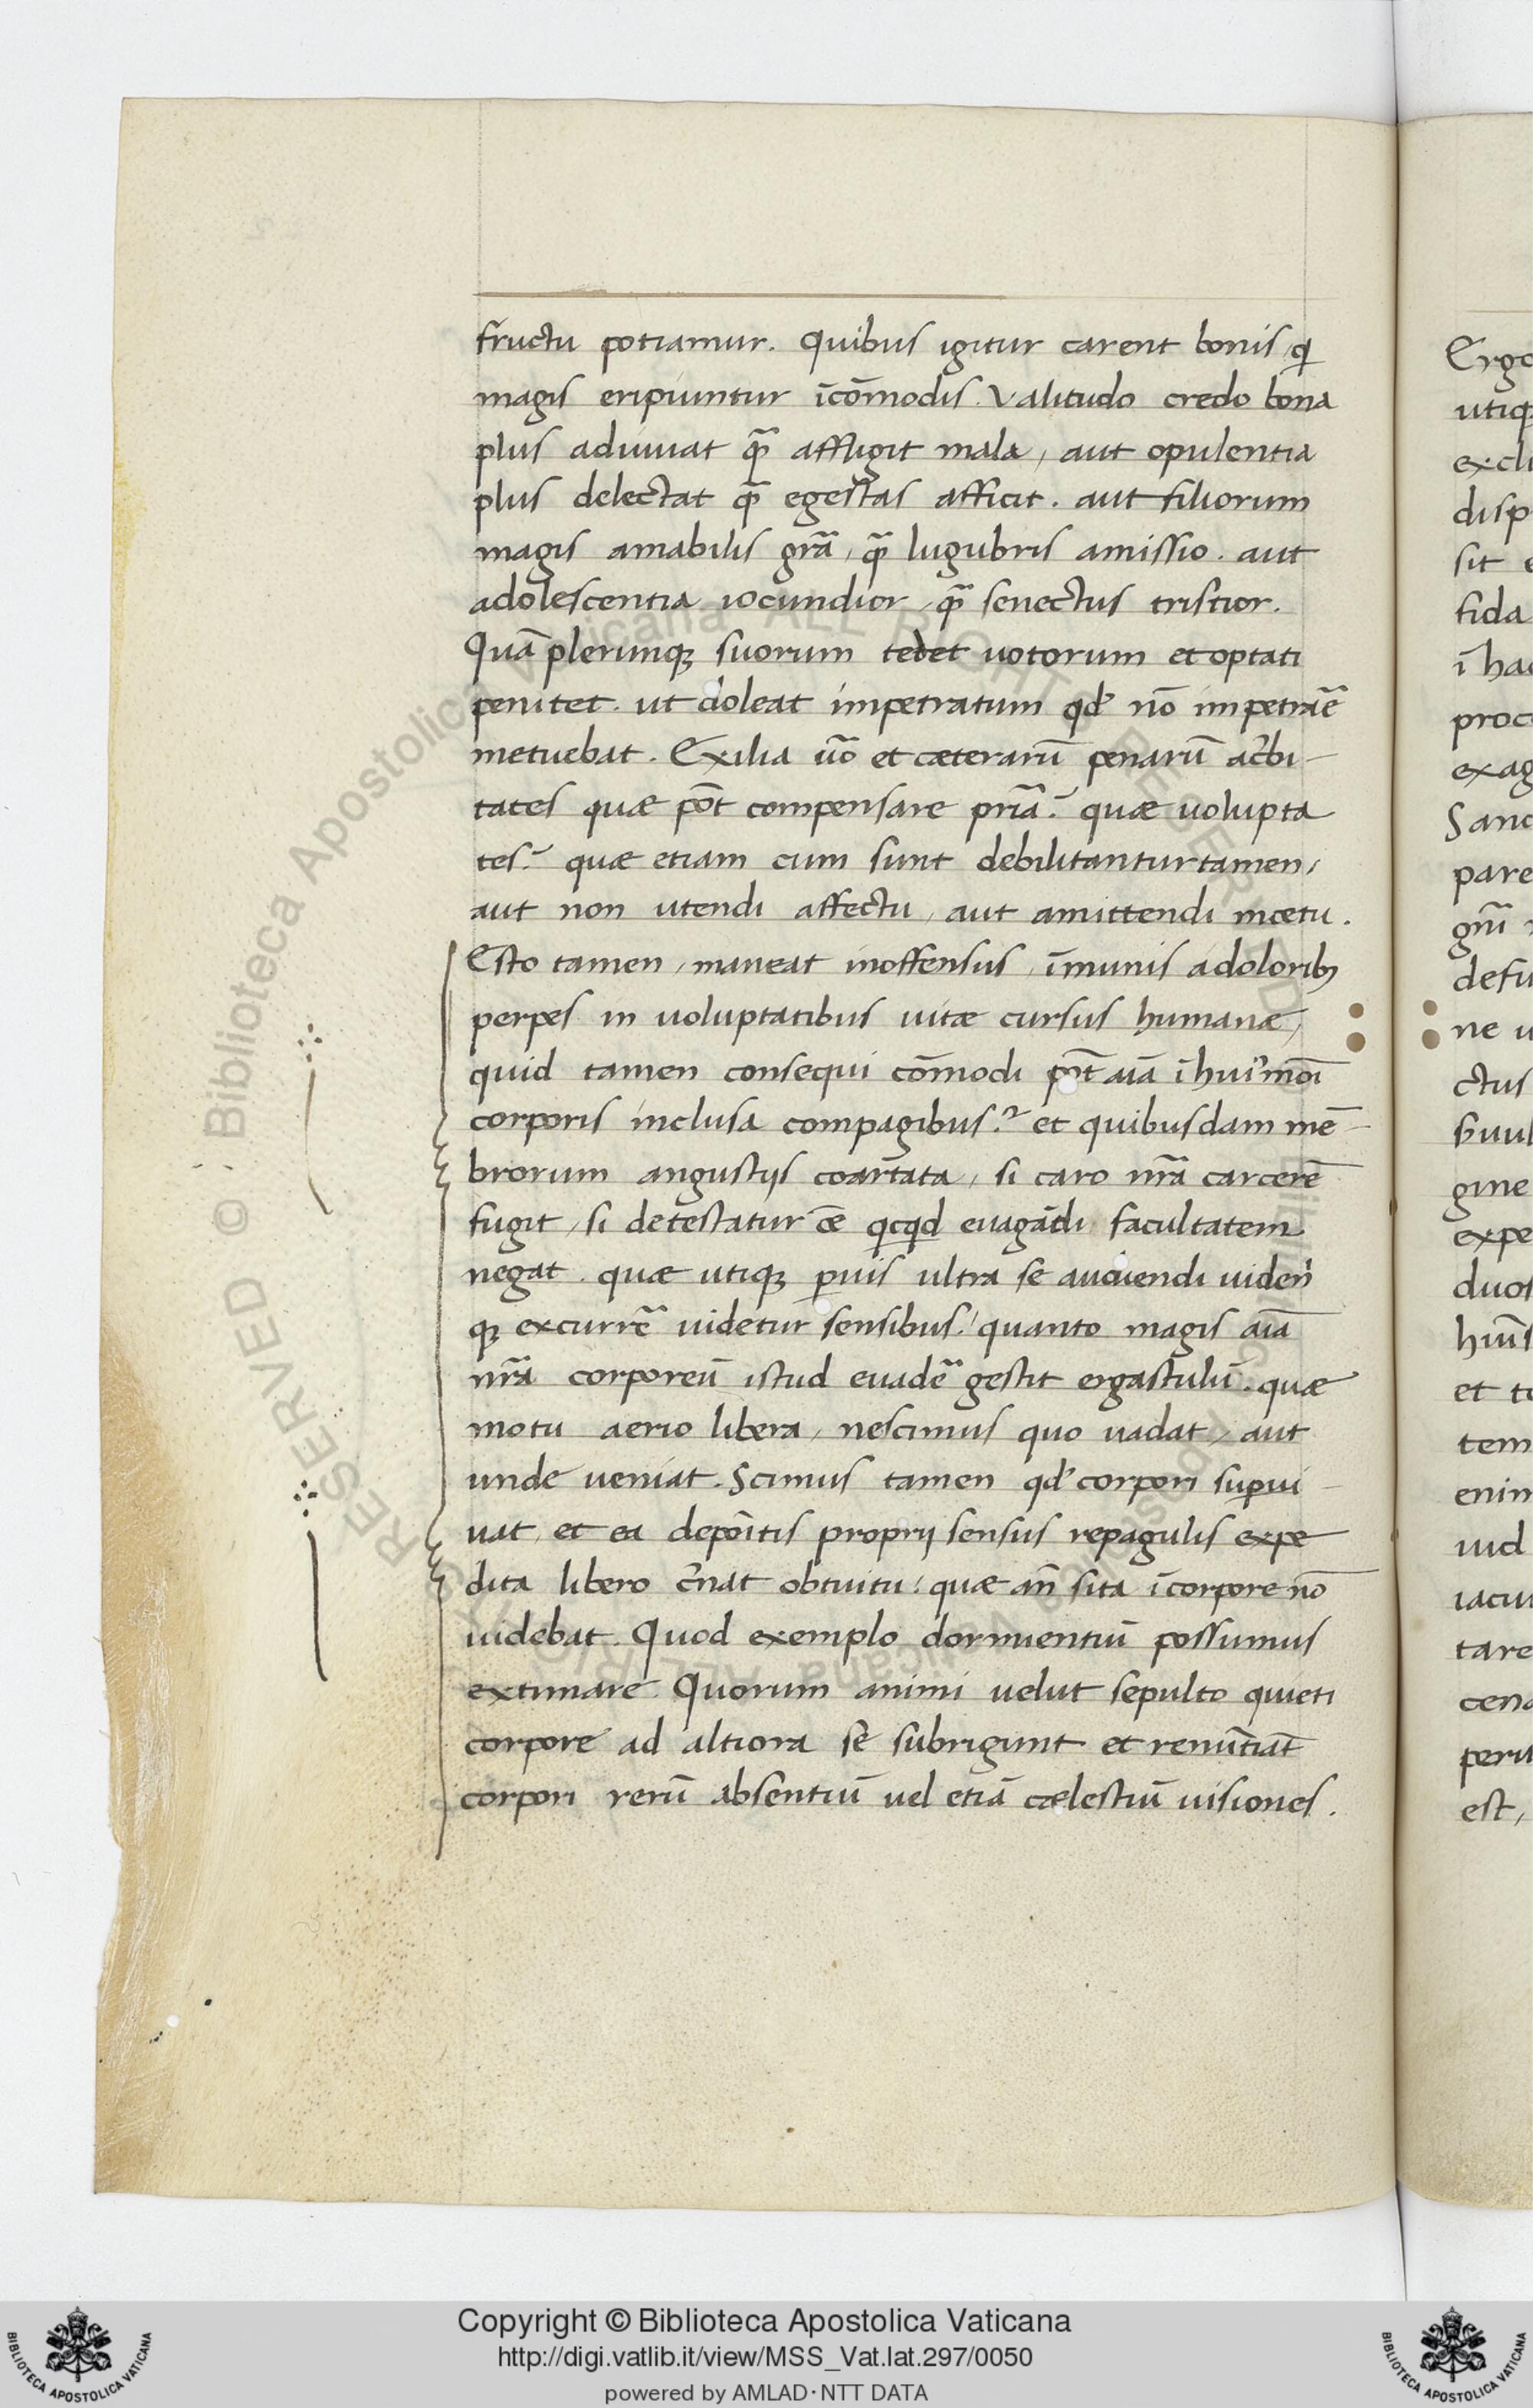 fructu potiamur. Quibus igitur carent bonis, q̄
magis eripiuntur ĩcōmodis. Valitudo credo bona
plus adiuuat q̃ affligit mala, aut opulentia
plus delectat q̃ egestas afficit. aut filiorum
magis amabilis gr̃a, q̃ lugubris amissio. aut
adolescentia iocundior, q̃ senectus tristior.
Quā plerunq; suorum tedet uotorum et optati
penitet. ut doleat impetratum qd' nō impetrar̃e
metuebat. Exilia ũo et cæterarū penarū ac̃bi-
tates quæ põt compensare pr̃ia? quæ uolupta
tes? quæ etiam cum sunt debilitantur tamen,
aut non utendi affectu, aut amittendi mœtu.
Esto tamen, maneat inoffensus, ĩmunis a dolorib;
perpes in uoluptatibus uitæ cursus humanæ,
quid tamen consequi cōmodi põt aĩa ĩ hui'mõi
corporis inclusa compagibus? et quibusdam mē-
brorum angustijs coartata, si caro nr̃a carcerē
fugit, si detestatur õe qcqd euagãdi facultatem
negat. quæ utiq; ꝑuis ultra se audiendi uiden'
q; excurrẽ uidetur sensibus. quanto magis aĩa
nr̃a corporeū istud euadẽ gestit ergastulū. quæ
motu aerio libera, nescimus quo uadat, aut
unde ueniat. Scimus tamen qd' corpori suꝑui-
uat, et ea depõitis proprij sensus repagulis expe
dita libero c̃nat obtuitu: quæ añ sita ĩ corpore nō
uidebat. Quod exemplo dormientiū possumus
extimare. Quorum animi uelut sepulto quieti
corpore ad altiora se subrigunt et renũtiãt
corpori rerū absentiū uel etiā cælestiū uisiones.
Ergo
utiq
excl
disp
sit e
fida
ĩ ha
proc
exag
Sanc
pare
defu
ne u
ctus
gine
expe
duo
et t
tem
enim
uid
iacu
tare
cena
peri
est,
RESERVED © Biblioteca Apostolica Vaticana ALL RIGHTS RESERVED
Copyright © Biblioteca Apostolica Vaticana
http://digi.vatlib.it/view/MSS_Vat.lat.297/0050
powered by AMLAD·NTT DATA
BIBLIOTECA APOSTOLICA VATICANA
BIBLIOTECA APOSTOLICA VATICANA